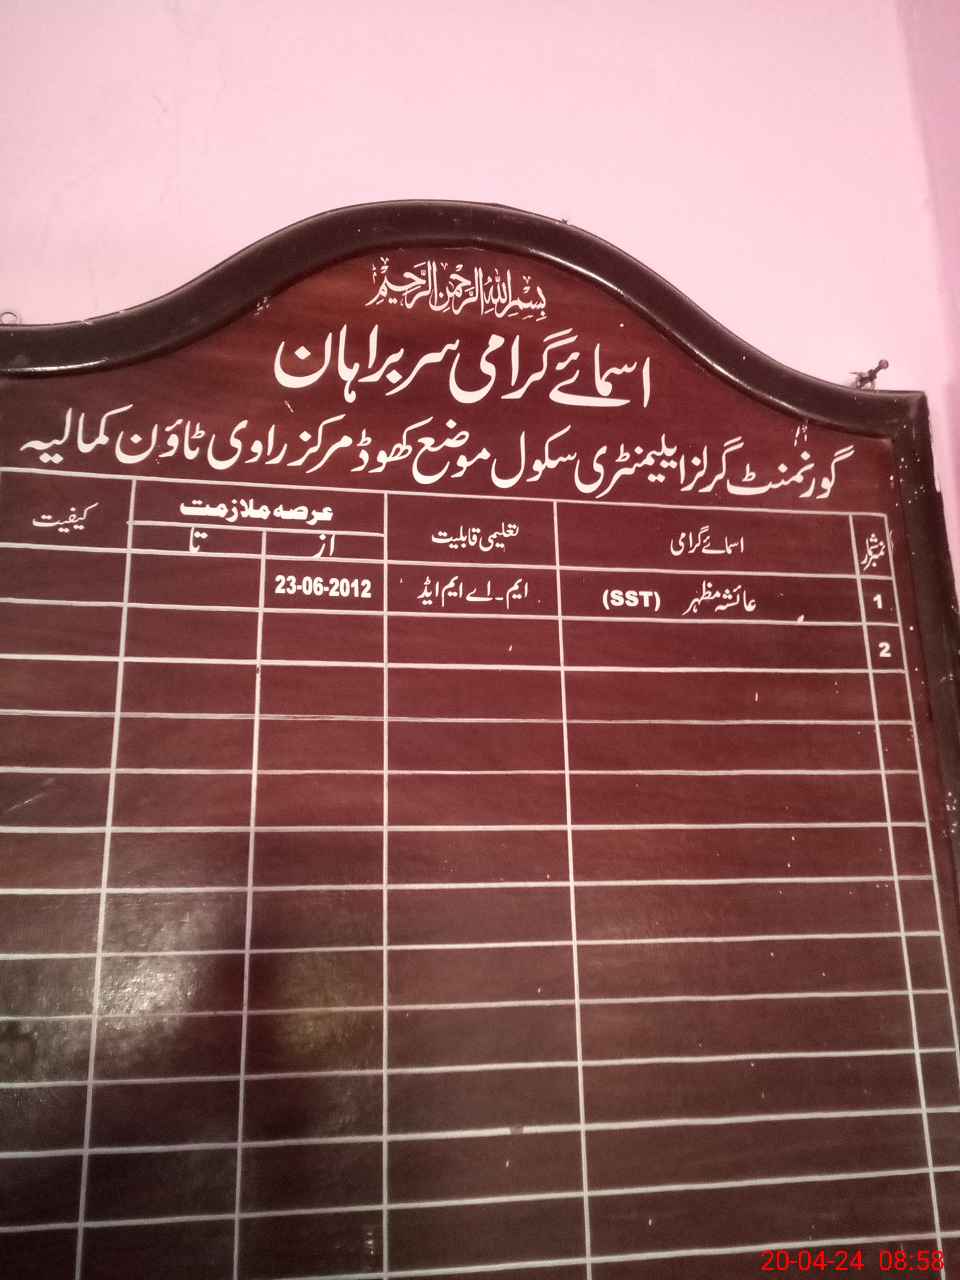 بسم اللہ الرحمن الرحیم
اسمائے گرامی سربراہان
گورنمنٹ گرلز ایلیمنٹری سکول موضع کھوڈ مرکز راوی ٹاؤن کمالیہ
نمبر شمار اسمائے گرامی تعلیمی قابلیت عرصہ ملازمت کیفیت
از تا
1 عائشہ مظہر (SST) ایم۔اے ایم ایڈ 23-06-2012
2
20-04-24 08:58